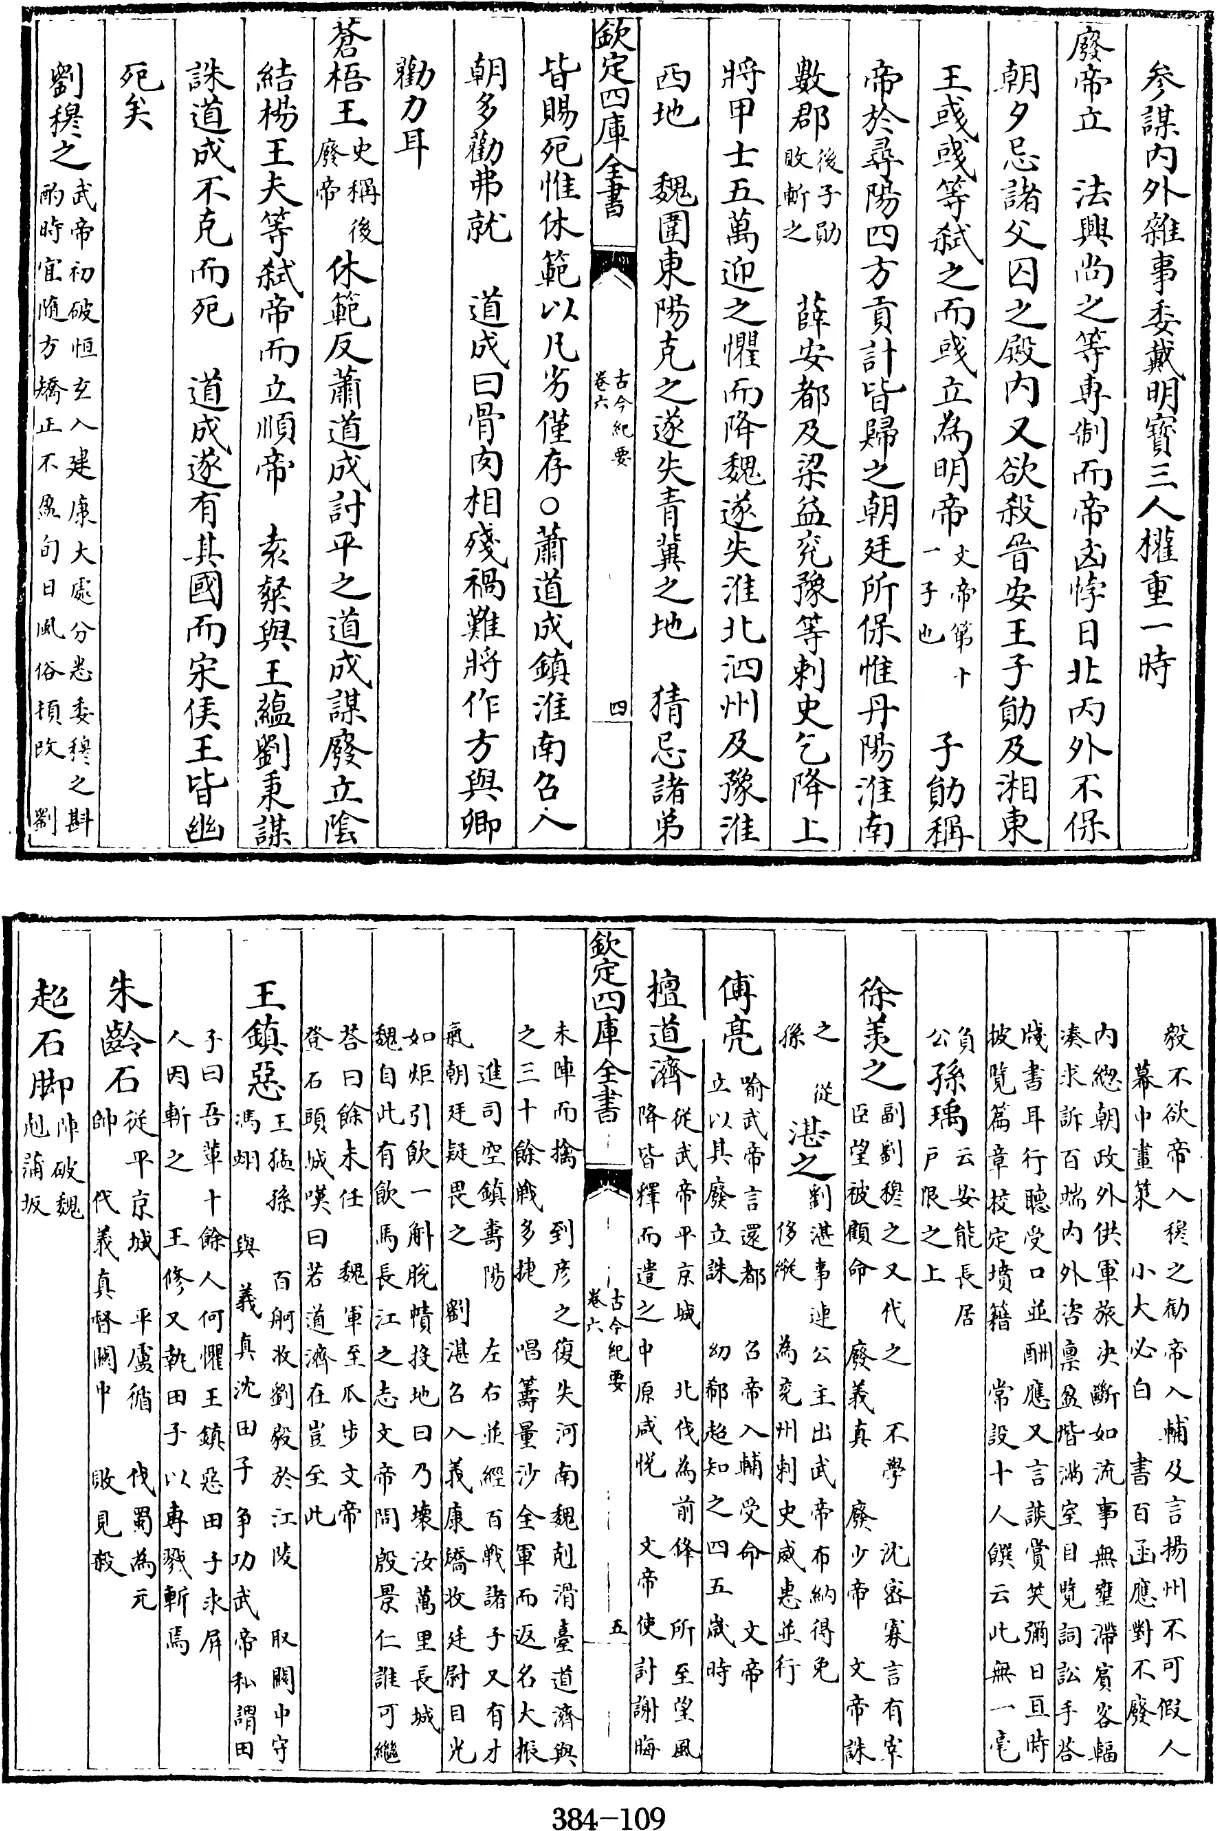 参謀内外雜事委戴明寳三人權重一時
廢帝立　法興尚之等專制而帝凶悖日北丙外不保
朝夕忌諸父囚之殿内又欲殺晉安王子勛及湘東
王彧彧等弑之而彧立為明帝文帝第十一子也　子勛稱
帝於尋陽四方貢計皆歸之朝廷所保惟丹陽淮南
數郡後子勛敗斬之　薛安都及梁益兖豫等刺史乞降上
將甲士五萬迎之懼而降魏遂失淮北泗州及豫淮
西地　魏圍東陽克之遂失青冀之地　猜忌諸弟
欽定四庫全書　古今紀要　卷六　四
皆賜死惟休範以凡劣僅存○蕭道成鎮淮南召入
朝多勸弗就　道成曰骨肉相殘禍難將作方與卿
勠力耳
蒼梧王史稱後廢帝　休範反蕭道成討平之道成謀廢立陰
結楊王夫等弑帝而立順帝　袁粲與王蘊劉秉謀
誅道成不克而死　道成遂有其國而宋侯王皆幽
死矣
劉穆之武帝初破恒玄入建康大處分悉委穆之斟
酌時宜隨方矯正不盈旬日風俗頓改　劉
毅不欲帝入穆之勸帝入輔及言揚州不可假人
幕中畫䇿　小大必白　書百函應對不廢
内總朝政外供軍旅決斷如流事無壅滯賓客輻
湊求訴百端内外咨禀盈堦滿室目覽詞訟手荅
牋書耳行聽受口並酬應又言談賞笑彌日亘時
披覽篇章校定墳籍　常設十人饌云此無一毫
負公　孫瑀云安能長居
戸限之上
徐羡之副劉穆之又代之　不學　沈密寡言有宰
臣望被顧命　廢義真　廢少帝　文帝誅
之　從孫　湛之劉湛事連公主出武帝布納得免
侈縱　為兖州刺史威惠並行
傅亮喻武帝言還都　召帝入輔受命　文帝
立以其廢立誅　幼郗超知之四五歲時
檀道濟從武帝平京城　北伐為前鋒　所至望風
降皆釋而遣之中原咸悦　文帝使計謝晦
未陣而擒　到彦之復失河南魏剋滑臺道濟與
之三十餘戰多捷　唱籌量沙全軍而返名大振
欽定四庫全書　古今紀要　卷六　五
進司空鎮壽陽　左右並經百戰諸子又有才
氣朝廷疑畏之　劉湛召入義康矯收廷尉目光
如炬引飲一斛脱幘投地曰乃壞汝萬里長城
魏自此有飲馬長江之志文帝問殷景仁誰可繼
荅曰餘未任　魏軍至瓜步文帝
登石頭城嘆曰若道濟在豈至此
王鎮惡王猛孫　百舸收劉毅於江陵　取闗中守
馮翊　與義真沈田子争功武帝私謂田
子曰吾輩十餘人何懼王鎮惡田子求屏
人因斬之　王修又執田子以専戮斬焉
朱齡石從平京城　平盧循　伐蜀為元
帥　代義真督闗中　敗見殺
超石脚陣破魏
尅蒲坂
384-109